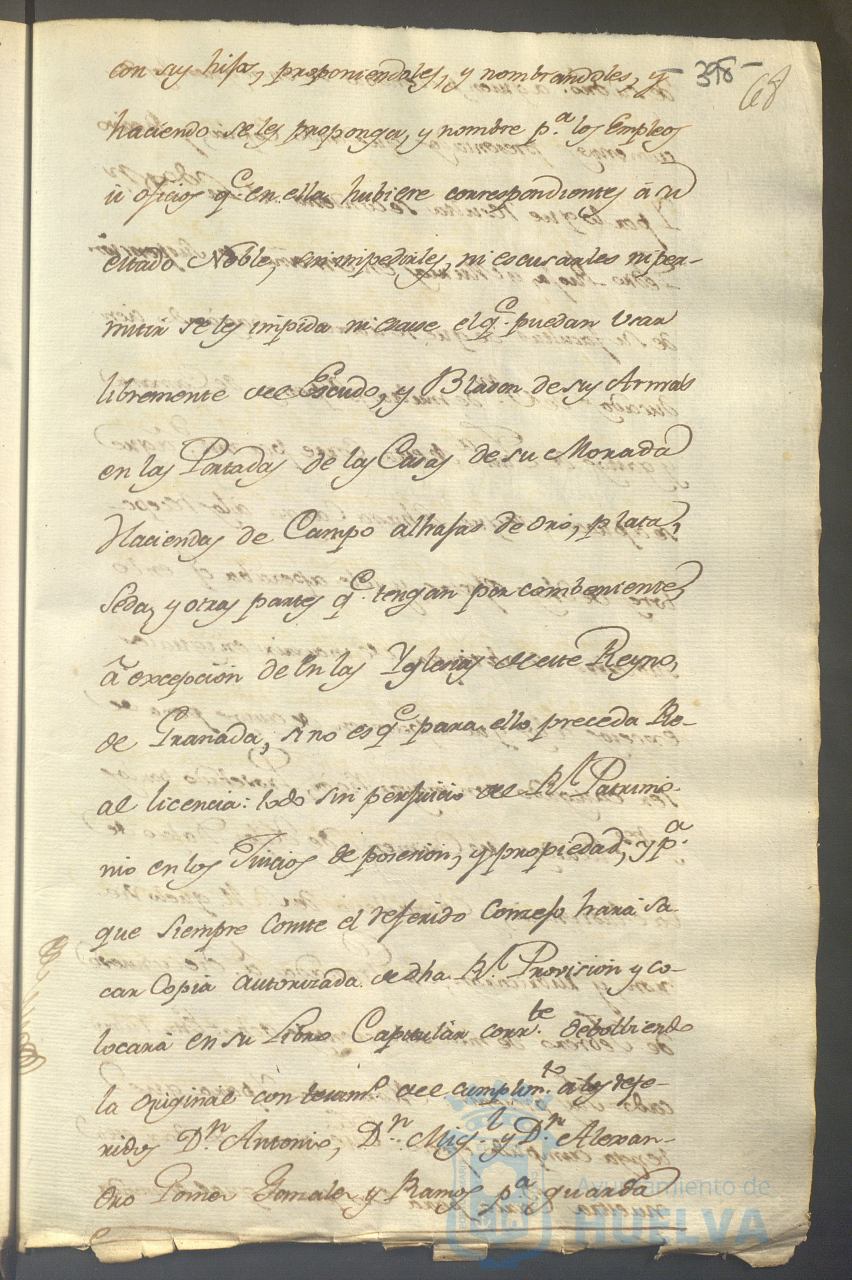 con sus hijos, proponiendoles, y nombrandoles, y
- 398 -
68
haciendo se les proponga, y nombre p.a los Empleos
ú oficios q.e en ella hubiere correspondientes á su
estado Noble, sin impedirles, ni escusarles ni per-
mitir se les impida ni escuse el q.e puedan usar
libremente del Escudo, y Blason de sus Armas
en las Portadas de las Casas de su Morada
Haciendas de Campo alhajas de oro, plata,
Seda, y otras partes q.e tengan por combeniente,
á excepcion de en las Yglesias de este Reyno,
de Granada, si no es q.e para ello preceda Re-
al licencia: todo sin perjuicio del R.l Patrimo-
nio en los Juicios de posesion, y propiedad, y p.a
que siempre conste el referido Concejo hará sa-
car Copia autorizada de dha R.l Provision y co-
locará en su Libro Capitular corr.te debolbiendo
la original con testim.o del cumplim.to á los refe-
ridos D.n Antonio, D.n Mig.l y D.n Alexan-
dro Gomez Gonzalez y Ramos p.a guarda
Ayuntamiento de
HUELVA